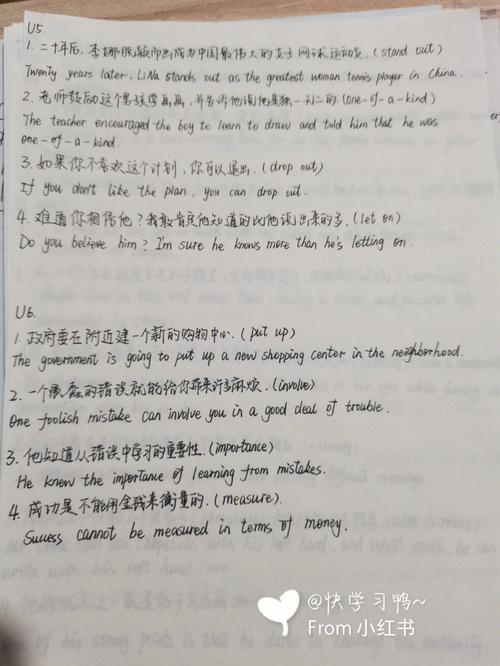 U5.
1. 二十年后,李娜脱颖而出成为中国最伟大的女子网球运动员.(stand out)
Twenty years later, LiNa stands out as the greatest woman tennis player in China.
2. 老师鼓励这个男孩学画画,并告诉他说他是独一无二的.(one-of-a-kind)
The teacher encouraged the boy to learn to draw and told him that he was
one-of-a-kind.
3. 如果你不喜欢这个计划,你可以退出.(drop out)
If you don't like the plan, you can drop out.
4. 难道你相信他?我敢肯定他知道的比他说出来的多.(let on)
Do you believe him? I'm sure he knows more than he's letting on.
U6.
1. 政府要在附近建一个新的购物中心.(put up)
The government is going to put up a new shopping center in the neighborhood.
2. 一个愚蠢的错误就能给你带来许多麻烦.(involve)
One foolish mistake can involve you in a good deal of trouble.
3. 他知道从错误中学习的重要性.(importance)
He knew the importance of learning from mistakes.
4. 成功是不能用金钱来衡量的.(measure).
Success cannot be measured in terms of money.
@快学习鸭~
From 小红书